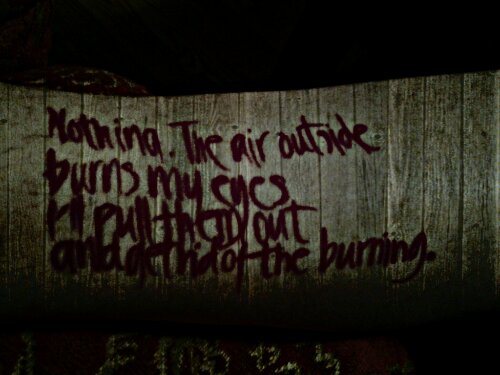 Nothing. The air outside
burns my eyes
I'll pull them out
and get rid of the burning.